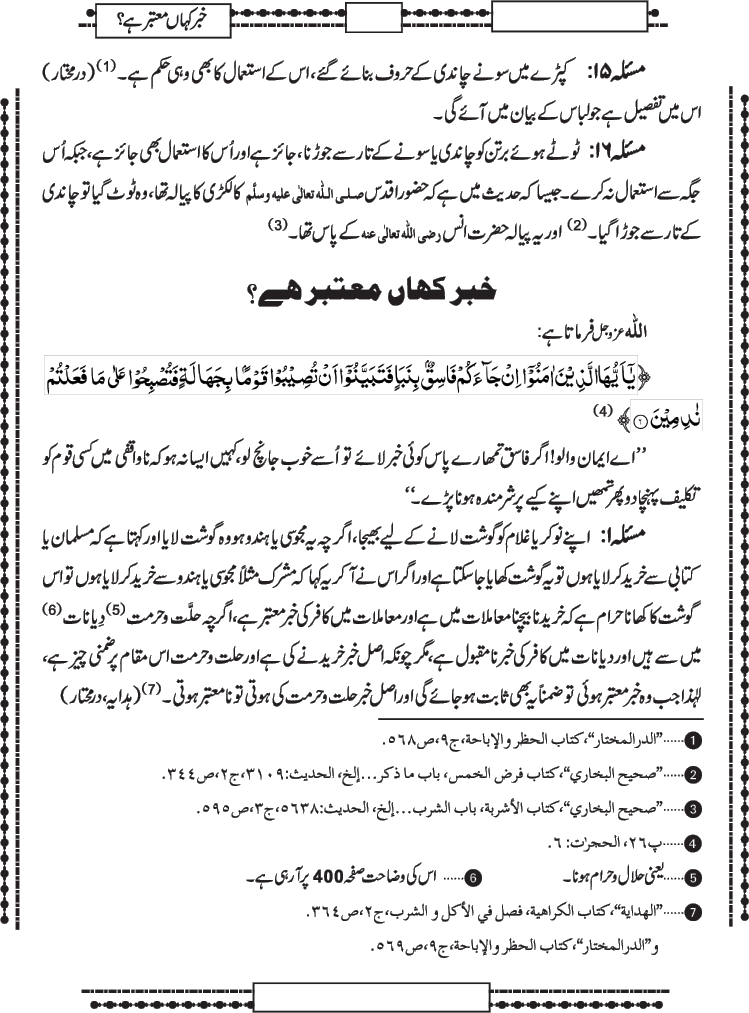 خبر کہاں معتبر ہے؟
مسئلہ ۱۵: کپڑے میں سونے چاندی کے حروف بنائے گئے، اس کے استعمال کا بھی وہی حکم ہے۔(1) (درمختار)
اس میں تفصیل ہے جو لباس کے بیان میں آئے گی۔
مسئلہ ۱۶: ٹوٹے ہوئے برتن کو چاندی یا سونے کے تار سے جوڑنا، جائز ہے اور اُس کا استعمال بھی جائز ہے، جبکہ اُس
جگہ سے استعمال نہ کرے۔ جیسا کہ حدیث میں ہے کہ حضور اقدس صلی اللہ تعالٰی علیہ وسلّم کا لکڑی کا پیالہ تھا، وہ ٹوٹ گیا تو چاندی
کے تار سے جوڑا گیا۔(2) اور یہ پیالہ حضرت انس رضی اللہ تعالٰی عنہ کے پاس تھا۔(3)
خبر کہاں معتبر ہے؟
اللہ عزوجل فرماتا ہے:
﴿یٰۤاَیُّهَا الَّذِیْنَ اٰمَنُوْۤا اِنْ جَآءَكُمْ فَاسِقٌۢ بِنَبَاٍ فَتَبَیَّنُوْۤا اَنْ تُصِیْبُوْا قَوْمًۢا بِجَهَالَةٍ فَتُصْبِحُوْا عَلٰى مَا فَعَلْتُمْ
نٰدِمِیْنَ ۶﴾ (4)
’’اے ایمان والو! اگر فاسق تمھارے پاس کوئی خبر لائے تو اُسے خوب جانچ لو، کہیں ایسا نہ ہو کہ ناواقفی میں کسی قوم کو
تکلیف پہنچا دو پھر تمھیں اپنے کیے پر شرمندہ ہونا پڑے۔‘‘
مسئلہ ۱: اپنے نوکر یا غلام کو گوشت لانے کے لیے بھیجا، اگرچہ یہ مجوسی یا ہندو ہو وہ گوشت لایا اور کہتا ہے کہ مسلمان یا
کتابی سے خرید کر لایا ہوں تو یہ گوشت کھایا جاسکتا ہے اور اگر اس نے آکر یہ کہا کہ مشرک مثلاً مجوسی یا ہندو سے خرید کر لایا ہوں تو اس
گوشت کا کھانا حرام ہے کہ خریدنا بیچنا معاملات میں ہے اور معاملات میں کافر کی خبر معتبر ہے، اگرچہ حلّت و حرمت (5) دِیانات (6)
میں سے ہیں اور دیانات میں کافر کی خبر نا مقبول ہے، مگر چونکہ اصل خبر خریدنے کی ہے اور حلت و حرمت اس مقام پر ضمنی چیز ہے،
لہٰذا جب وہ خبر معتبر ہوئی تو ضمناً یہ بھی ثابت ہوجائے گی اور اصل خبر حلت و حرمت کی ہوتی تو نا معتبر ہوتی۔(7) (ہدایہ، درمختار)
1......”الدرالمختار“،کتاب الحظر والإباحة،ج۹،ص۵۶۸.
2......”صحیح البخاري“،کتاب فرض الخمس، باب ما ذکر...إلخ، الحدیث:۳۱۰۹،ج۲،ص۳۴۴.
3......”صحیح البخاري“،کتاب الأشربة، باب الشرب...إلخ، الحدیث:۵۶۳۸،ج۳،ص۵۹۵.
4......پ۲۶، الحجرٰت: ۶.
5......یعنی حلال و حرام ہونا۔ 6...... اس کی وضاحت صفحہ 400 پر آرہی ہے۔
7......”الهداية“،کتاب الکراهية، فصل في الأکل و الشرب،ج۲،ص۳۶۴.
و”الدرالمختار“،کتاب الحظر والإباحة،ج۹،ص۵۶۹.